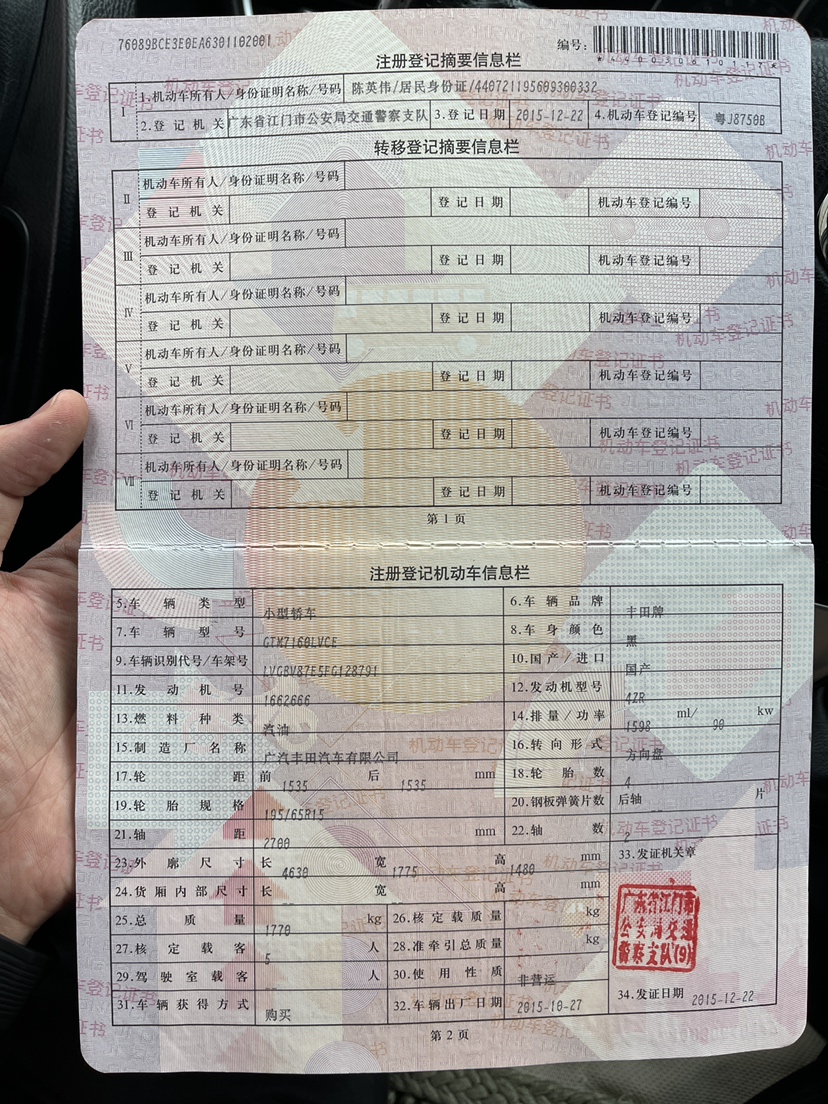 76089BCE3E0EA6301102001
编号:
注册登记摘要信息栏
Ⅰ 1.机动车所有人/身份证明名称/号码 陈英伟/居民身份证/440721195609300332
2.登记机关 广东省江门市公安局交通警察支队 3.登记日期 2015-12-22 4.机动车登记编号 粤J8750B
转移登记摘要信息栏
Ⅱ 机动车所有人/身份证明名称/号码
登记机关 登记日期 机动车登记编号
Ⅲ 机动车所有人/身份证明名称/号码
登记机关 登记日期 机动车登记编号
Ⅳ 机动车所有人/身份证明名称/号码
登记机关 登记日期 机动车登记编号
Ⅴ 机动车所有人/身份证明名称/号码
登记机关 登记日期 机动车登记编号
Ⅵ 机动车所有人/身份证明名称/号码
登记机关 登记日期 机动车登记编号
Ⅶ 机动车所有人/身份证明名称/号码
登记机关 登记日期 机动车登记编号
第1页
注册登记机动车信息栏
5.车辆类型 小型轿车 6.车辆品牌 丰田牌
7.车辆型号 GTM7160LVCE 8.车身颜色 黑
9.车辆识别代号/车架号 LVGBV87E5FG128791 10.国产/进口 国产
11.发动机号 1662666 12.发动机型号 4ZR
13.燃料种类 汽油 14.排量/功率 1598 ml/ 90 kw
15.制造厂名称 广汽丰田汽车有限公司 16.转向形式 方向盘
17.轮距 前 1535 后 1535 mm 18.轮胎数 4
19.轮胎规格 195/65R15 20.钢板弹簧片数 后轴 -- 片
21.轴距 2700 mm 22.轴数 2
23.外廓尺寸 长 4630 宽 1775 高 1480 mm 33.发证机关章
24.货厢内部尺寸 长 -- 宽 -- 高 -- mm
广东省江门市
公安局交通
警察支队(9)
25.总质量 1770 kg 26.核定载质量 -- kg
27.核定载客 5 人 28.准牵引总质量 -- kg
29.驾驶室载客 -- 人 30.使用性质 非营运
31.车辆获得方式 购买 32.车辆出厂日期 2015-10-27 34.发证日期 2015-12-22
第2页